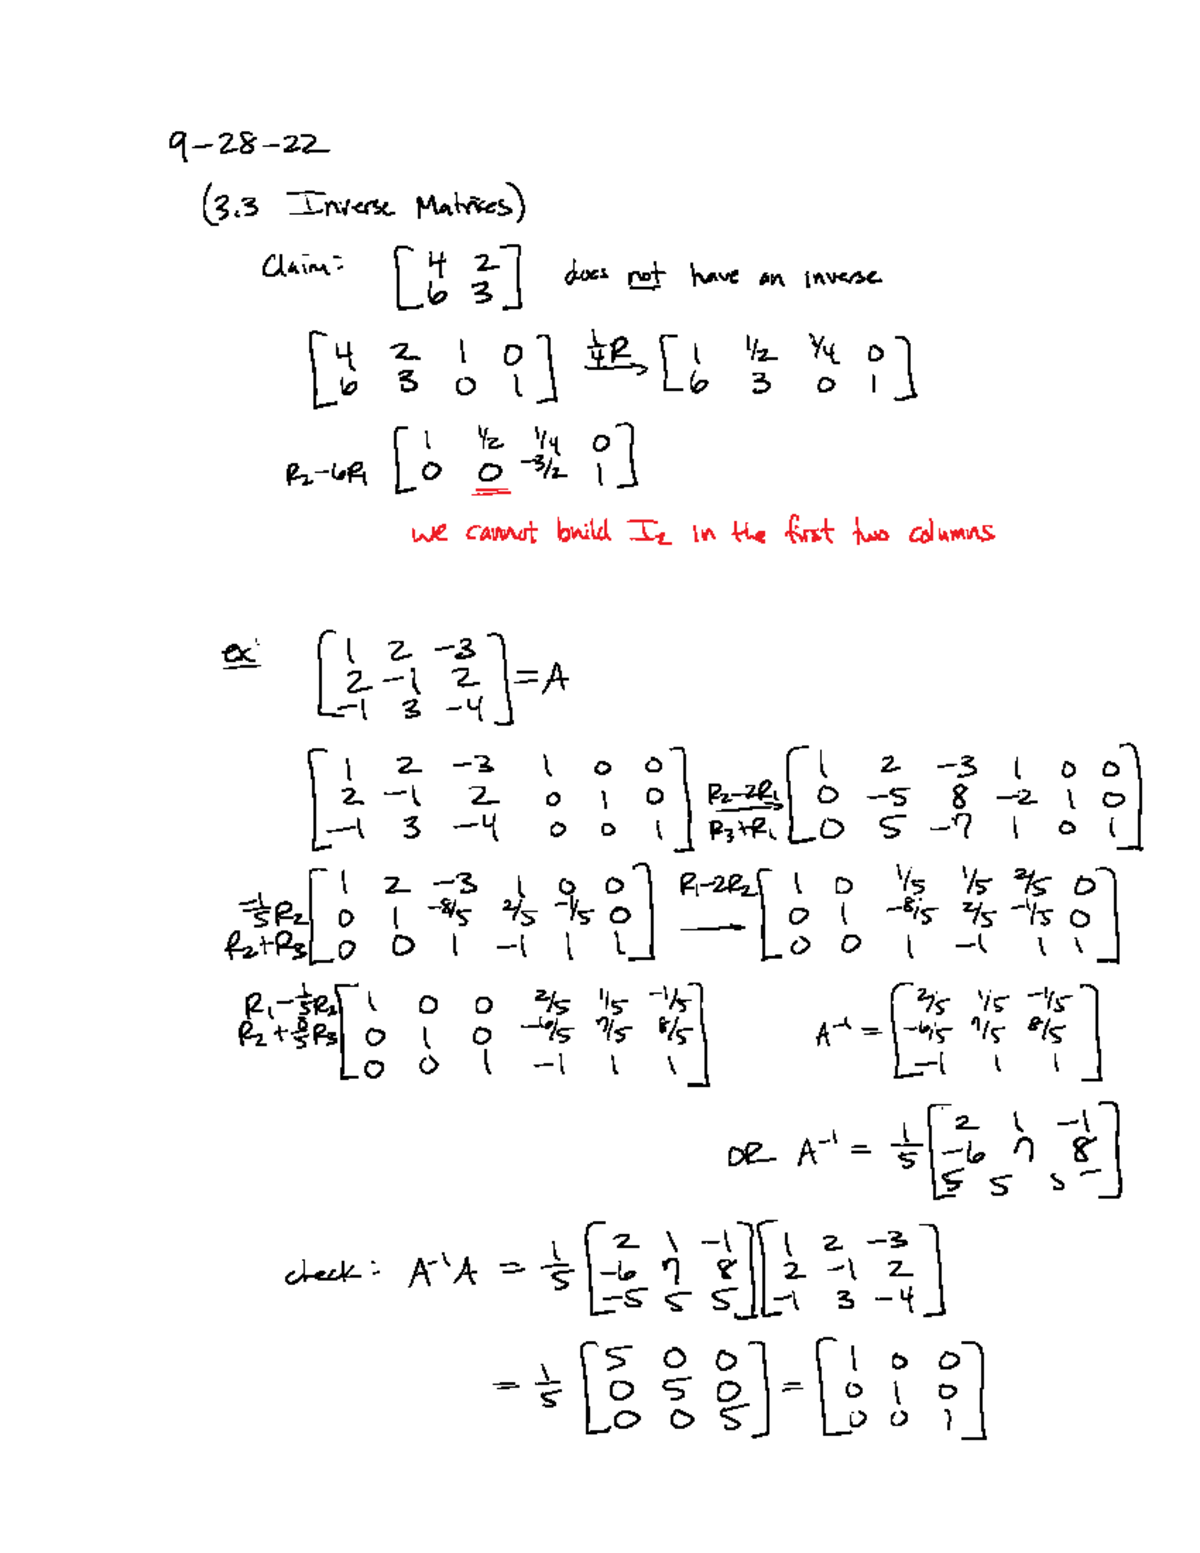 9-28-22
(3.3 Inverse Matrices)
Claim: [4 2; 6 3] does not have an inverse
[4 2 1 0; 6 3 0 1] 1/4R → [1 1/2 1/4 0; 6 3 0 1]
R2-6R1 [1 1/2 1/4 0; 0 0 -3/2 1]
we cannot build I2 in the first two columns
ex: [1 2 -3; 2 -1 2; -1 3 -4] = A
[1 2 -3 1 0 0; 2 -1 2 0 1 0; -1 3 -4 0 0 1] R2-2R1 → R3+R1 [1 2 -3 1 0 0; 0 -5 8 -2 1 0; 0 5 -7 1 0 1]
-1/5R2 R2+R3 [1 2 -3 1 0 0; 0 1 -8/5 2/5 -1/5 0; 0 0 1 -1 1 1] R1-2R2 → [1 0 1/5 1/5 2/5 0; 0 1 -8/5 2/5 -1/5 0; 0 0 1 -1 1 1]
R1-1/5R3 R2+8/5R3 [1 0 0 2/5 1/5 -1/5; 0 1 0 -6/5 7/5 8/5; 0 0 1 -1 1 1] A^-1 = [2/5 1/5 -1/5; -6/5 7/5 8/5; -1 1 1]
OR A^-1 = 1/5 [2 1 -1; -6 7 8; 5 5 5]
check: A^-1A = 1/5 [2 1 -1; -6 7 8; -5 5 5] [1 2 -3; 2 -1 2; -1 3 -4]
= 1/5 [5 0 0; 0 5 0; 0 0 5] = [1 0 0; 0 1 0; 0 0 1]